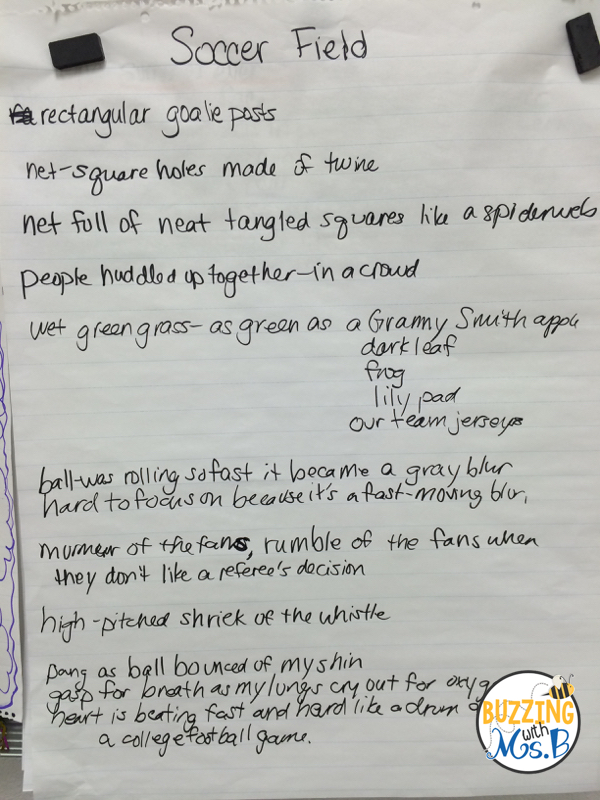 Soccer Field
rectangular goalie posts
net-square holes made of twine
net full of neat tangled squares like a spiderweb
people huddled up together-in a crowd
wet green grass- as green as a Granny Smith apple
dark leaf
frog
lily pad
our team jerseys
ball-was rolling so fast it became a gray blur
hard to focus on because it's a fast-moving blur.
murmur of the fans, rumble of the fans when
they don't like a referee's decision
high-pitched shriek of the whistle
pang as ball bounced of my shin
gasp for breath as my lungs cry out for oxyg
heart is beating fast and hard like a drum
a college football game.
BUZZING
with
Ms.B